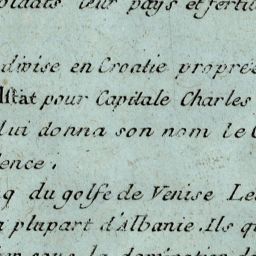 soldats leur pays et fertil
divise en Croatie propre
lstat pour Capitale Charles
lui donna son nom le C
dence.
q du golfe de Venise Le
a plupart d'Albanie. Ils q
sous la domination de